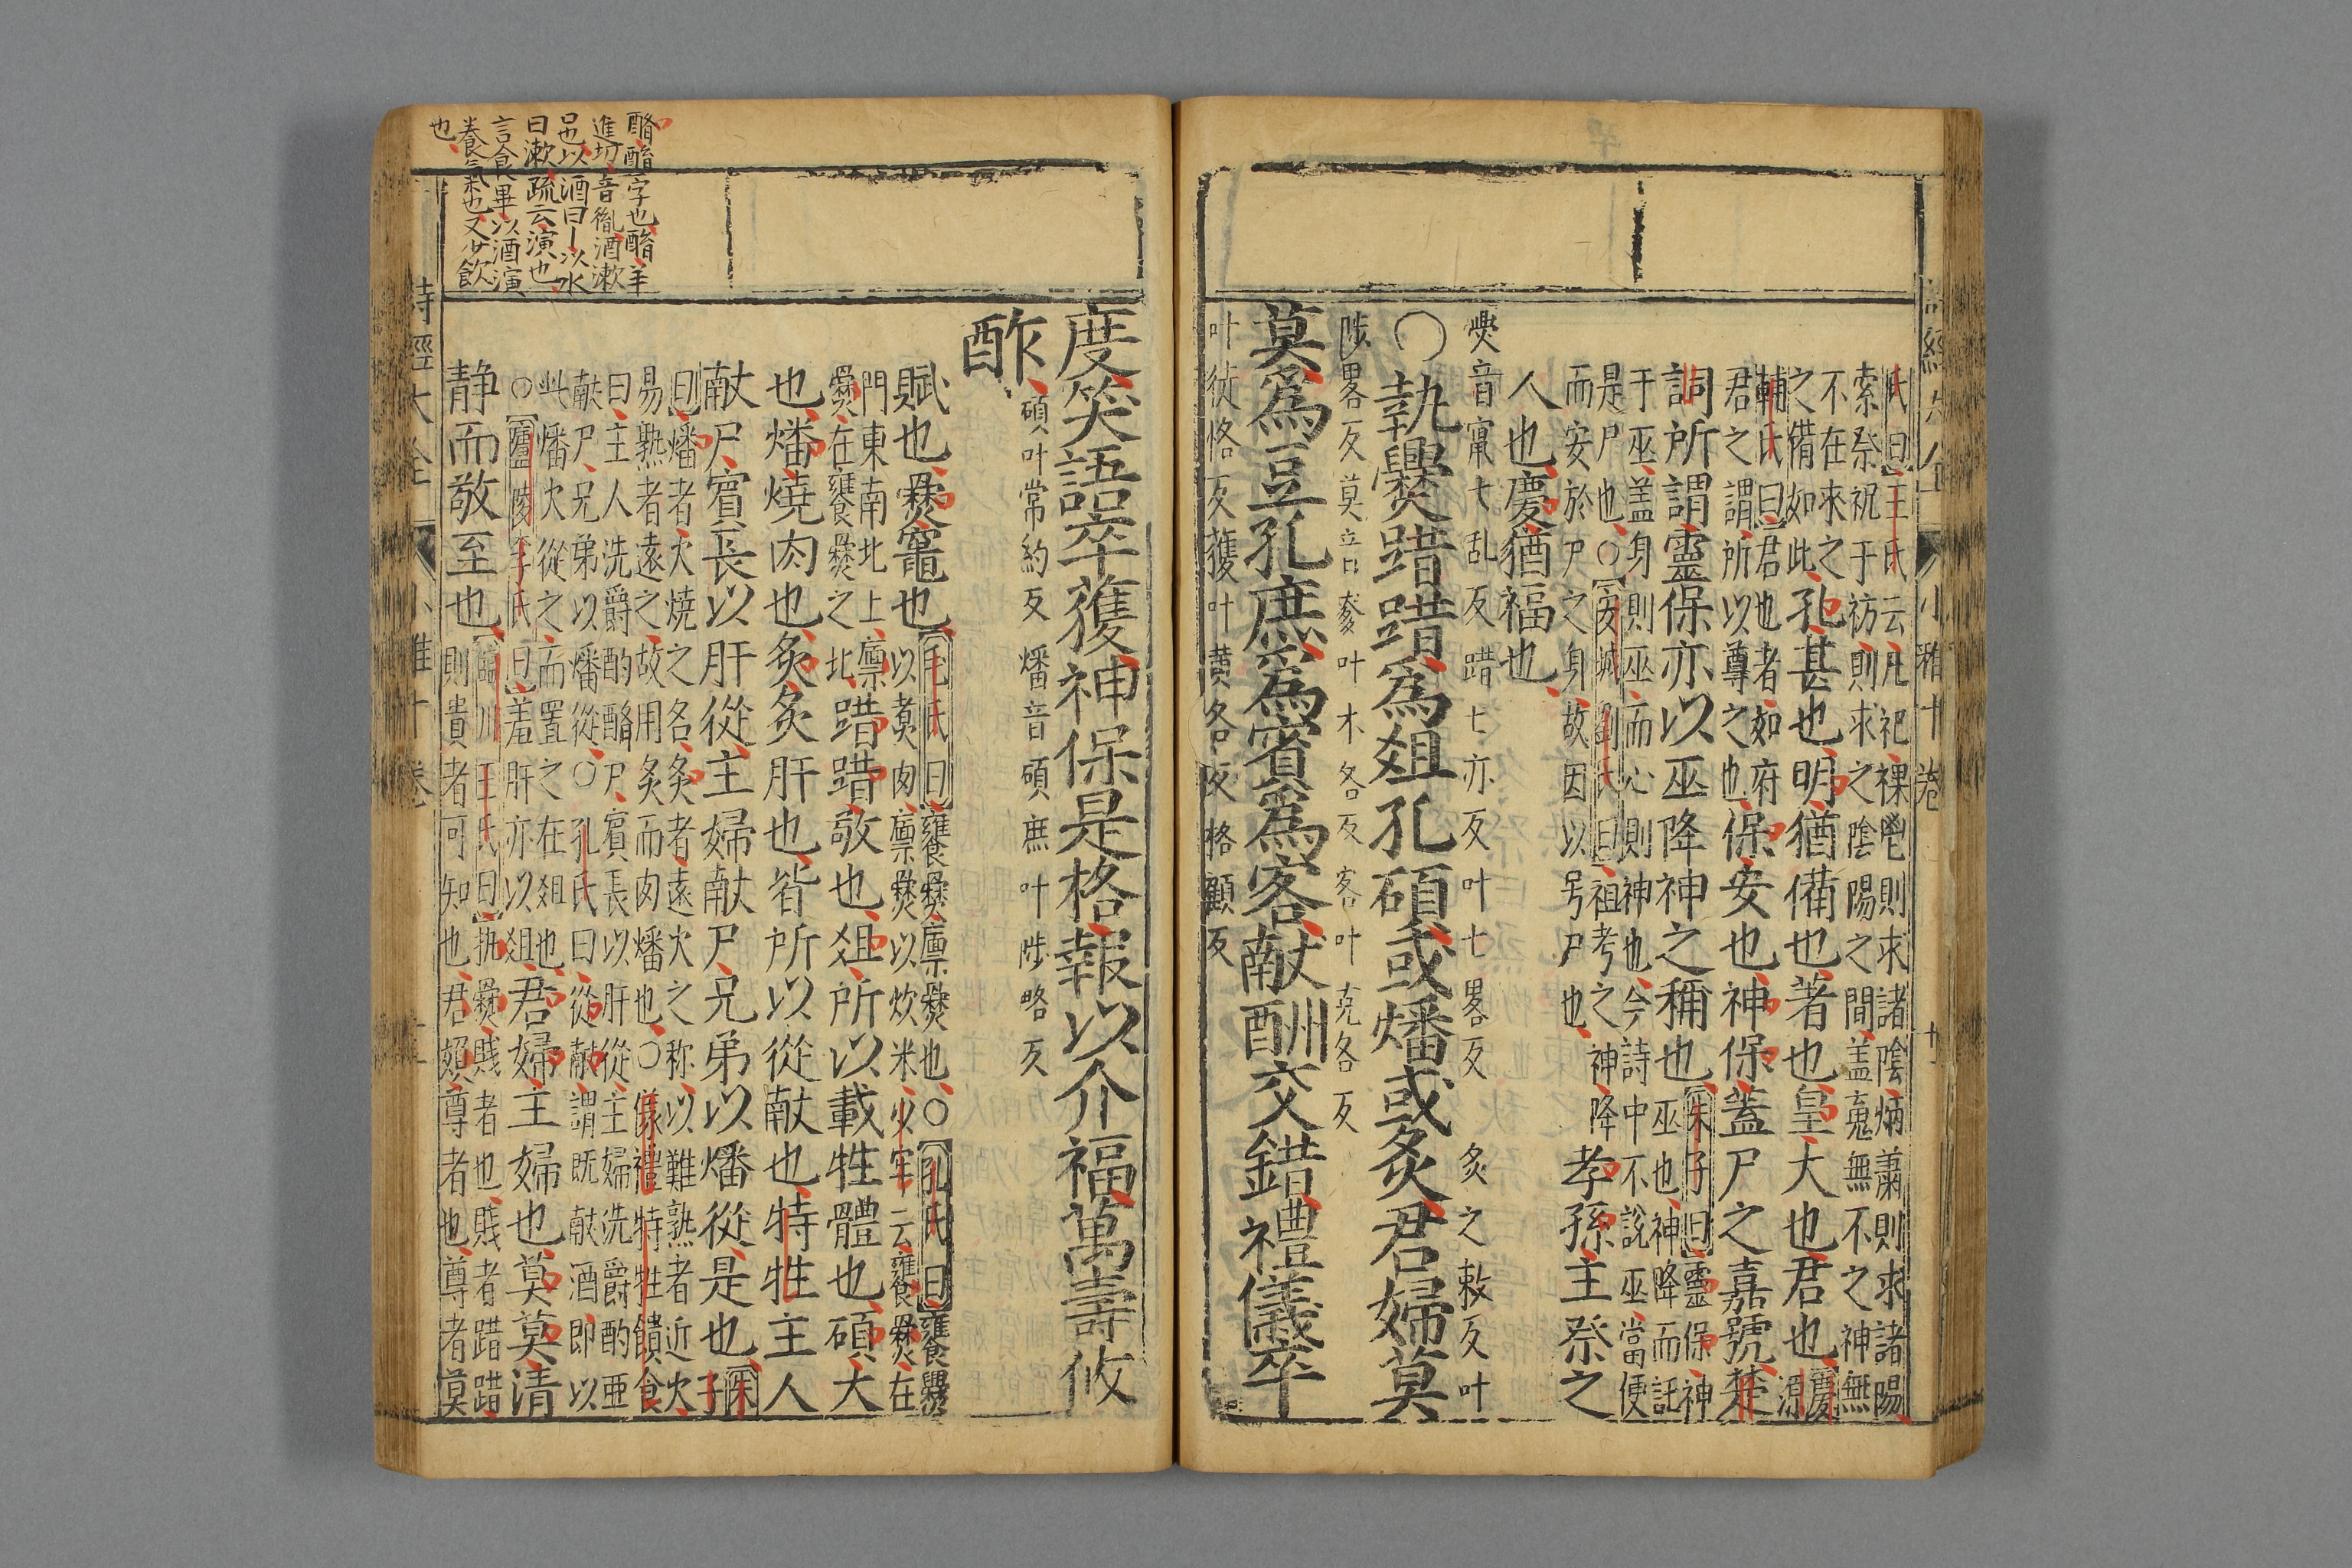 氏曰王氏云凡祀祼鬯則求諸陰焫蕭則求諸陽
索祭祝于祊則求之陰陽之間盖䰟無不之神無
不在求之
之備如此孔甚也明猶備也著也皇大也君也慶源
輔氏曰君也者如府
君之謂所以尊之也保安也神保蓋尸之嘉號楚
詞所謂靈保亦以巫降神之稱也朱子曰靈保神
巫也神降而託
于巫盖身則巫而心則神也今詩中不說巫當便
是尸也○安城劉氏曰祖考之神降
而安於尸之身故因以号尸也孝孫主祭之
人也慶猶福也
㸑音竄七乱反踖七亦反叶七畧反 炙之敕反叶
○執爨踖踖爲爼孔碩或燔或炙君婦莫
陟畧反莫音麥叶木各反客叶克各反
莫爲豆孔庶爲賓爲客献酬交錯禮儀卒
叶徒恪反獲叶黄各反格顧反
度笑語卒獲神保是格報以介福萬壽攸
酢 碩叶常約反燔音碩庶叶陟略反
賦也㸑竈也毛氏曰饔㸑廩㸑也○孔氏曰饔㸑
以煑肉廩㸑以炊米少牢云饔㸑在
門東南北上廩
㸑在饔㸑之北踖踖敬也爼所以載牲體也碩大
也燔燒肉也炙炙肝也皆所以從献也特牲主人
献尸賓長以肝從主婦献尸兄弟以燔從是也朱子
曰燔者火燒之名炙者遠火之称以難熟者近火
易熟者遠之故用炙而肉燔也○儀禮特牲饋食
曰主人洗爵酌酳尸賓長以肝從主婦洗爵酌亞
献尸兄弟以燔從○孔氏曰從献謂既献酒即以
此燔火從之而置之在爼也
○廬陵李氏曰羞肝亦以爼君婦主婦也莫莫清
静而敬至也臨川王氏曰執㸑賤者也賤者踖踖
則貴者可知也君婦尊者也尊者莫
詩經大全 小雅十卷
詩經大全 小雅十卷
酳酯字也酳羊
進切音胤酒漱
口也以酒曰丨以水
曰漱疏云演也
言食畢以酒演
養氣也又少飲
也